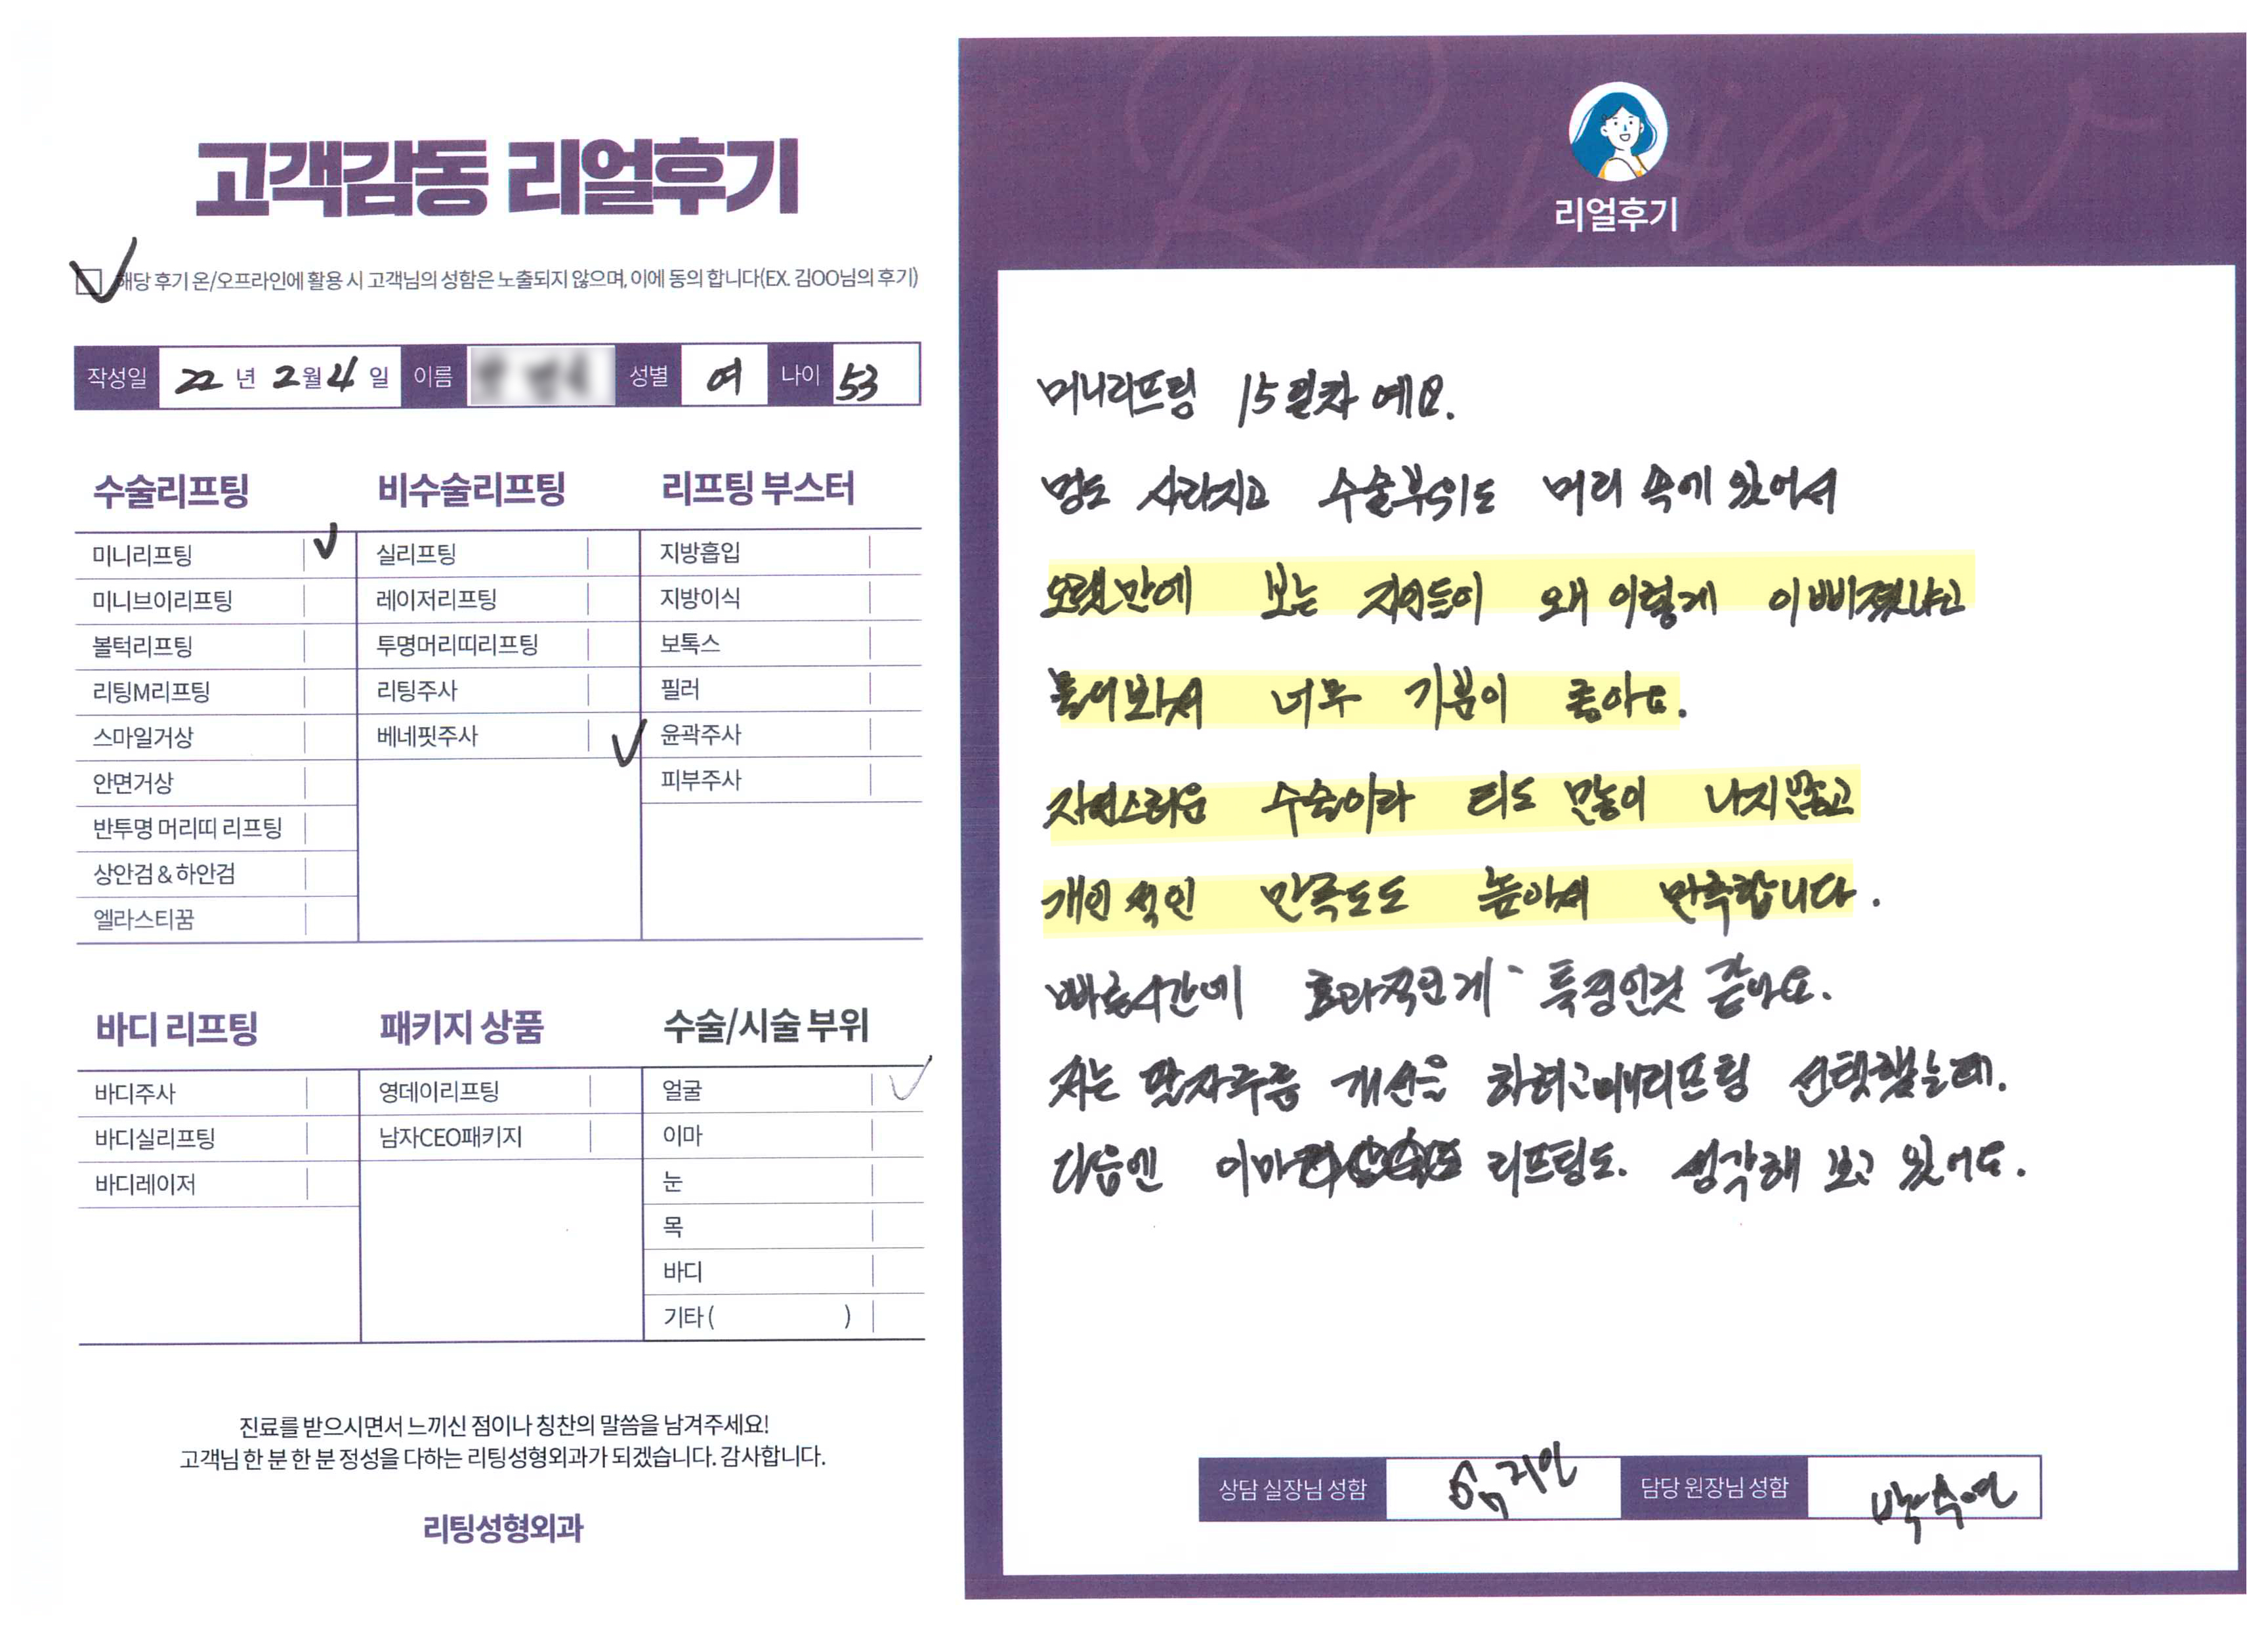 고객감동 리얼후기
해당 후기 온/오프라인에 활용 시 고객님의 성함은 노출되지 않으며, 이에 동의 합니다(EX. 김OO님의 후기)
작성일 22 년 2 월 4 일 이름 성별 여 나이 53
수술리프팅
미니리프팅
미니브이리프팅
볼턱리프팅
리팅M리프팅
스마일거상
안면거상
반투명 머리띠 리프팅
상안검 & 하안검
엘라스티꿈
비수술리프팅
실리프팅
레이저리프팅
투명머리띠리프팅
리팅주사
베네핏주사
리프팅 부스터
지방흡입
지방이식
보톡스
필러
윤곽주사
피부주사
바디 리프팅
바디주사
바디실리프팅
바디레이저
패키지 상품
영데이리프팅
남자CEO패키지
수술/시술 부위
얼굴
이마
눈
목
바디
기타 ( )
진료를 받으시면서 느끼신 점이나 칭찬의 말씀을 남겨주세요!
고객님 한 분 한 분 정성을 다하는 리팅성형외과가 되겠습니다. 감사합니다.
리팅성형외과
Review
리얼후기
미니리프팅 15일차 예요.
멍도 사라지고 수술부위도 머리 속에 있어서
오랫만에 보는 지인들이 왜 이렇게 이뻐졌냐고
물어봐서 너무 기분이 좋아요.
자연스러운 수술이라 티도 많이 나지않고
개인적인 만족도도 높아서 만족합니다.
빠른시간에 효과적인게 특징인것 같아요.
저는 팔자주름 개선을 하려고 미니리프팅 선택했는데.
다음엔 이마 리프팅도. 생각해 보고 있어요.
상담 실장님 성함 담당 원장님 성함 박수연